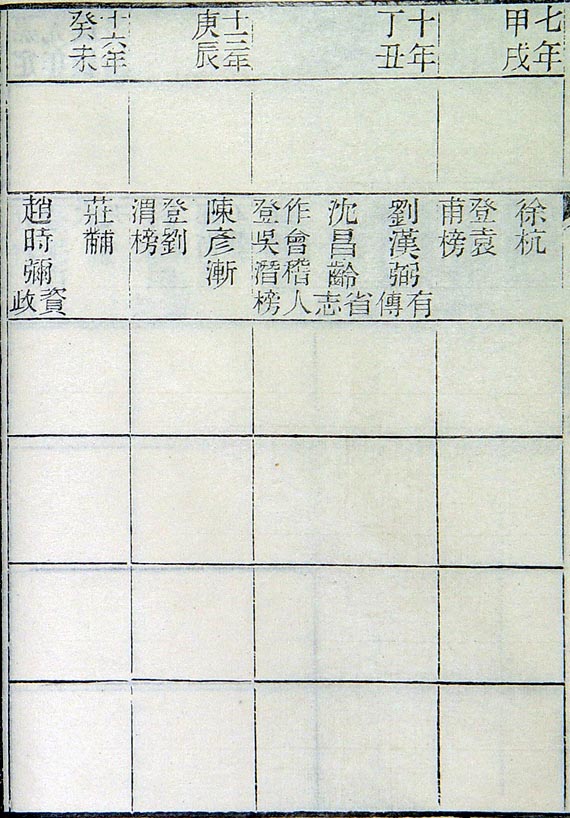 七年
甲戌
十年
丁丑
十三年
庚辰
十六年
癸未
徐杭
登袁
甫榜
劉漢弼有
傳
沈昌齡省
志
作會稽人
登吳潛榜
陳彥漸
登劉
渭榜
莊黼
趙時彌資
政